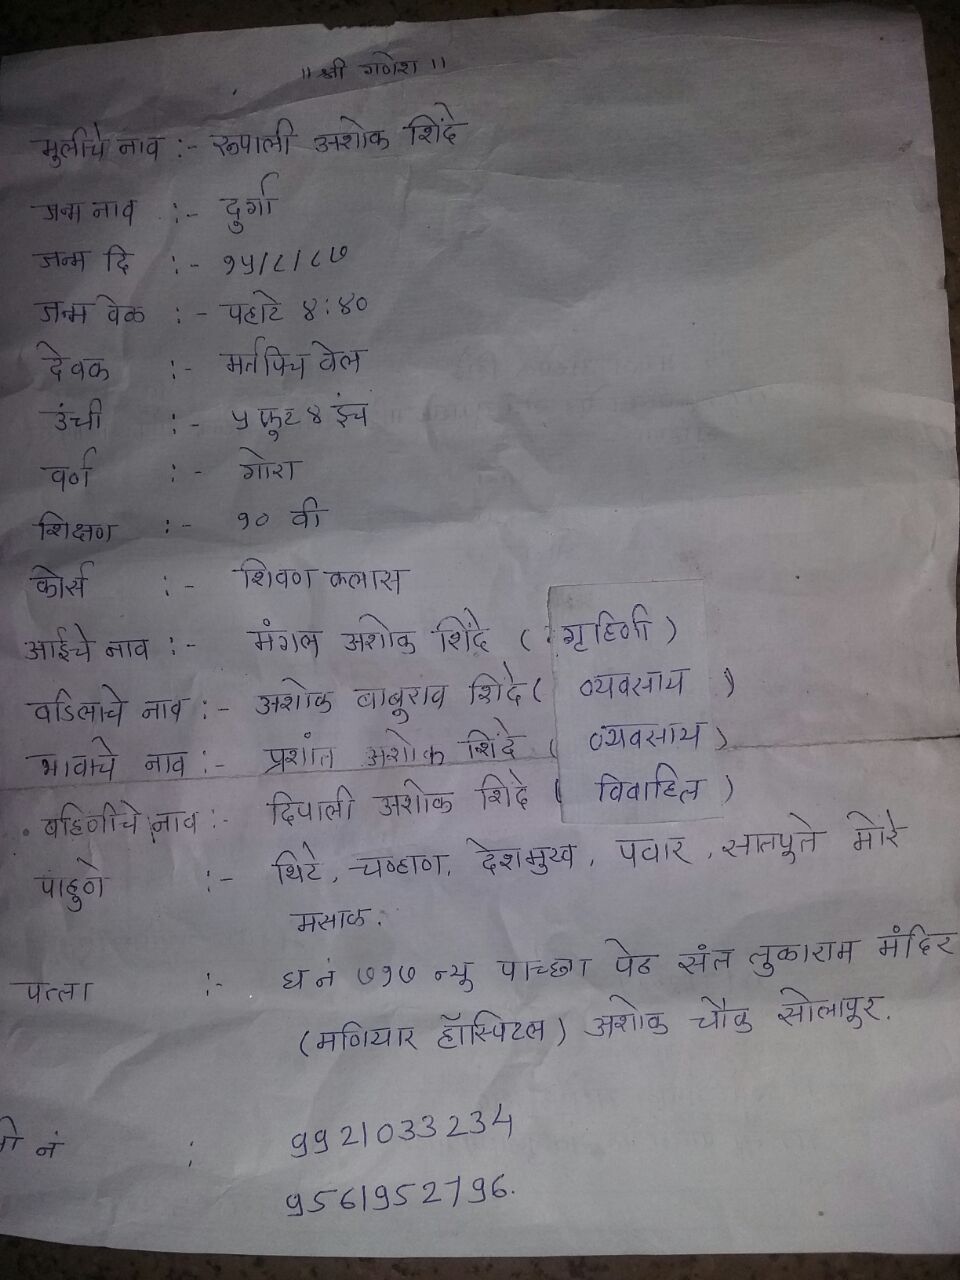 ॥ श्री गणेश ॥
मुलीचे नाव :- रूपाली अशोक शिंदे
जन्म नाव :- दुर्गा
जन्म दि :- १५/८/८७
जन्म वेळ :- पहाटे ४:४०
देवक :- वेल
उंची :- ५ फूट ४ इंच
वर्ण :- गोरा
शिक्षण :- १० वी
कोर्स :- शिवण क्लास
आईचे नाव :- मंगल अशोक शिंदे ( गृहिणी )
वडिलाचे नाव :- अशोक बाबुराव शिंदे ( व्यवसाय )
भावाचे नाव :- प्रशांत अशोक शिंदे ( व्यवसाय )
बहिणीचे नाव :- दिपाली अशोक शिंदे ( विवाहित )
पाहुणे :- थिटे, चव्हाण, देशमुख, पवार, सातपूते मोरे
मसाळ.
पत्ता :- घ नं ७१७ न्यू पाच्छा पेठ संत तुकाराम मंदिर
(मणियार हॉस्पिटल) अशोक चौक सोलापूर.
नं : 9921033234
9561952796.